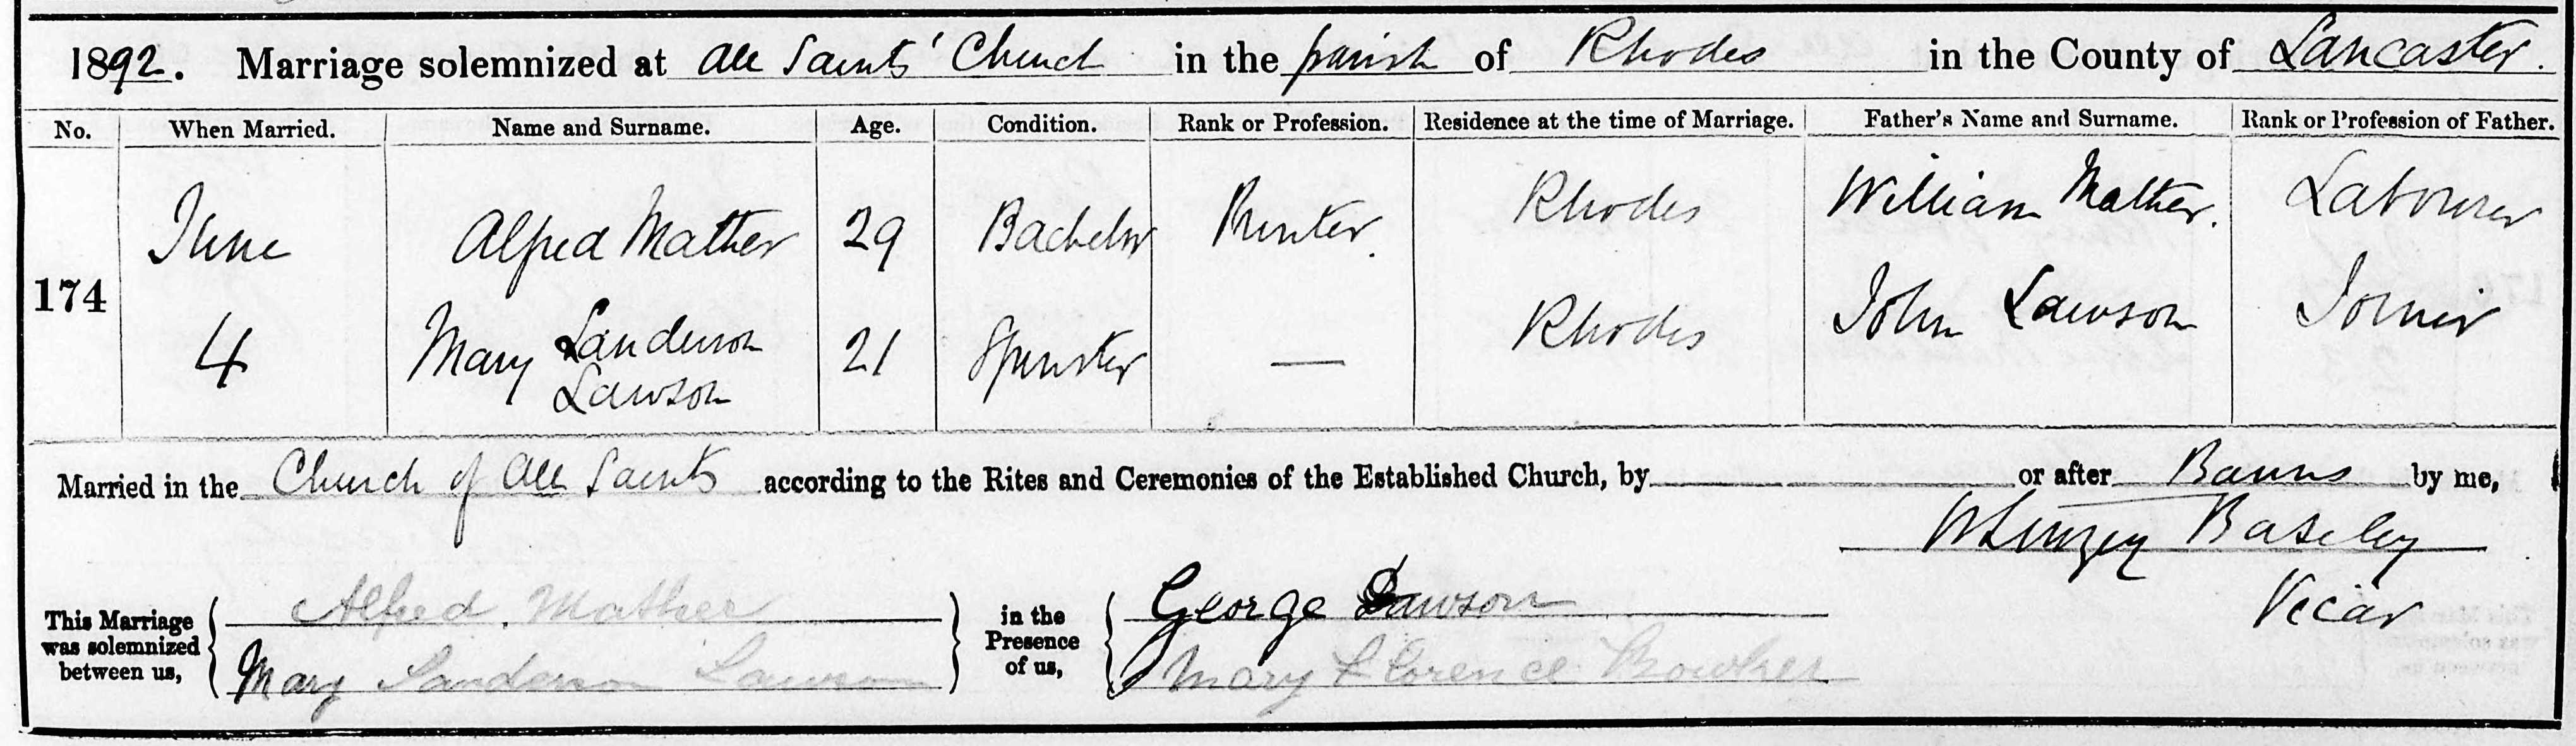 1892. Marriage solemnized at All Saints' Church in the parish of Rhodes in the County of Lancaster.
No. When Married. Name and Surname. Age. Condition. Rank or Profession. Residence at the time of Marriage. Father's Name and Surname. Rank or Profession of Father.
174 June Alfred Mather 29 Bachelor Printer. Rhodes William Mather. Labourer
4 Mary Sanderson 21 Spinster — Rhodes John Lawson Joiner
Lawson
Married in the Church of All Saints according to the Rites and Ceremonies of the Established Church, by or after Banns by me,
Baseley
Vicar
This Marriage was solemnized between us, Alfred Mather in the Presence of us, George Lawson
Mary Sanderson Lawson Mary Florence Bowker